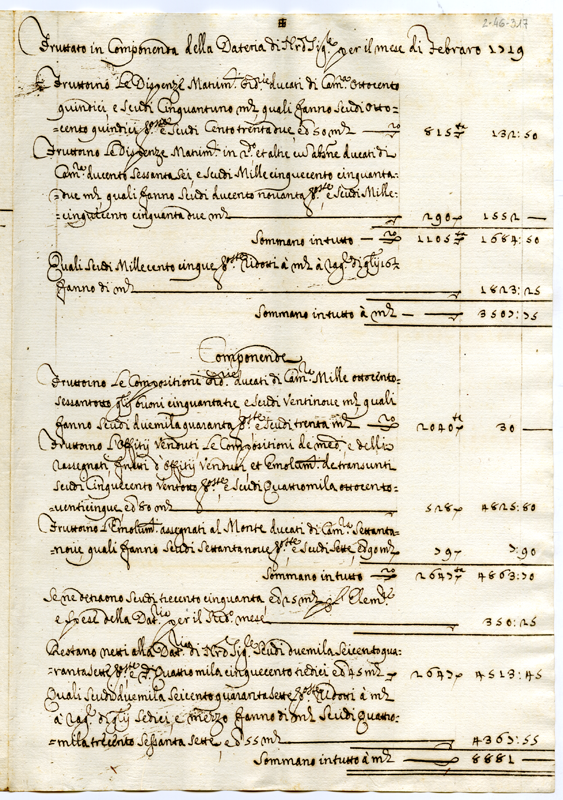 2-46-317
Fruttato in Componenda della Dateria di Nrō Sigre per il mese di Febraro 1719
Fruttorno Le Dispenze Matim. Ord.rie ducati di Camra Ottocento
quindici, e scudi Cinquantuno mta quali fanno scudi otto=
=cento quindici e scudi Cento trenta due, ed 50 mta 815 132:50
Fruttorno Le Dispenze Matim. in et altre ducati di
Camra ducento sessanta sei, e scudi Mille cinquecento cinquanta=
=due mta quali fanno scudi ducento novanta e scudi Mille=
=cinquecento cinquanta due mta 290 1552 —
Sommano in tutto — 1105 1684:50
Quali scudi Mille cento cinque ridotti à mta à rag. di
fanno di mta 1823:25
Sommano in tutto à mta 3507:75
Componende
Fruttorno Le Compositioni Ord.rie ducati di Camra Mille ottocento=
sessantotto cinquanta tre e scudi Ventinove mta quali
fanno scudi duemila quaranta e scudi trenta mta 2040 30 —
Fruttorno L'offitij Venduti Le Compositioni de med. e delli
rassegnati, frutti d'offitij Venduti et Emolum. de transunti
scudi Cinquecento Ventotto e scudi Quattromila ottocento=
=venticinque ed 80 mta 528 4825:80
Fruttorno L'Emolum. assegnati al Monte ducati di Camra Settanta=
=nove quali fanno scudi settantanove e scudi sette ed 90 mta 79 7:90
Sommano in tutto — 2647 4863:70
Se ne detraono scudi trecento cinquanta ed 25 mta p Elem.
e spese della Dat. per il sud.o mese 350:25
Restano netti alla Dat. di Nrō Sigre Scudi duemila seicento qua=
=ranta sette e Quattromila cinquecento tredici ed 45 mta 2647 4513:45
Quali scudi duemila seicento quaranta sette ridotti à mta
à rag. di sedici, e mezzo fanno di mta scudi Quattro=
=mila trecento sessanta sette, ed 55 mta 4367:55
Sommano in tutto à mta 8881 —